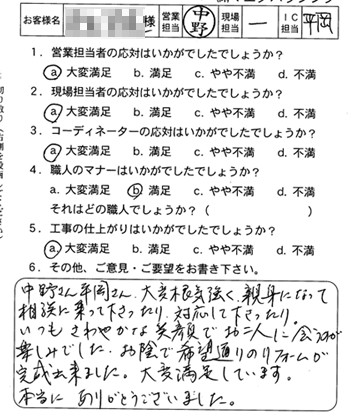 お客様名 様 営業担当 中野 現場担当 一 IC担当 平岡
1．営業担当者の応対はいかがでしたでしょうか？
a 大変満足 b. 満足 c. やや不満 d. 不満
2．現場担当者の応対はいかがでしたでしょうか？
a 大変満足 b. 満足 c. やや不満 d. 不満
3．コーディネーターの応対はいかがでしたでしょうか？
a 大変満足 b. 満足 c. やや不満 d. 不満
4．職人のマナーはいかがでしたでしょうか？
a. 大変満足 b 満足 c. やや不満 d. 不満
それはどの職人でしょうか？（ ）
5．工事の仕上がりはいかがでしたでしょうか？
a 大変満足 b. 満足 c. やや不満 d. 不満
6．その他、ご意見・ご要望をお書き下さい。
中野さん平岡さん、大変根気強く、親身になって
相談に乗って下さったり、対応して下さったり。
いつもさわやかな笑顔でお二人に会うのが
楽しみでした。お陰で希望通りのリフォームが
完成出来ました。大変満足しています。
本当にありがとうございました。